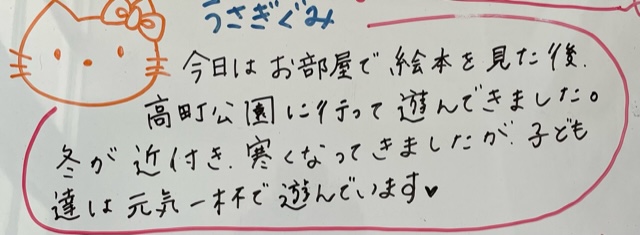 うさぎぐみ
今日はお部屋で絵本を見た後、
高町公園に行って遊んできました。
冬が近付き、寒くなってきましたが、子ども
達は元気一杯で遊んでいます♥